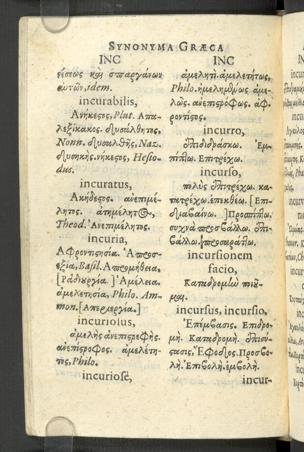 SYNONYMA GRÆCA
INC
σεως καὶ σπαργάνων
αὐτῶν, idem.
incurabilis,
Ανήκεσος, Plut. Απα-
λεξίκακος. δυσάλθητος,
Nonn. δυσαλθής, Naz.
δυσηκής. νήκεσος, Hesio-
dus.
incuratus,
Ακήδεσος. ἀνεπιμέ-
λητος. ἀτημέλητος,
Theod. Ἀνεπιμέλητος.
incuria,
Αφροντισησία. Ἀπροσ-
εξία, Basil. Απρομήθεια,
[Ῥαδιυργία.] Ἀμέλεια.
ἀμελετησία, Philo. Am-
mon. [Απεριεργία.]
incuriosus,
ἀμελής ἀνεπιστρεφής.
ἀνεπίστροφος. ἀμελέτη-
τος, Philo.
incuriosè,
INC
ἀμελητὶ ἀμελετήτως,
Philo. ἠμελημένως ἀμε-
λῶς. ἀνεπιστρόφως. ἀφ-
ροντίστως.
incurro,
Ἐμ-
πίπτω. Επιτρέχω.
incurso,
πολὺς ἐπιτρέχω. κα-
τατρέχω. ἐπιχθέω. [Επι-
] [Προσπίπτω,
συχνὰ προσβάλλω. ἐπι-
βάλλω.
incursionem
facio,
Καταδρομὼ ποιοῦ-
μαι.
incursus, incursio,
Ἐπέμβασις. Επιδρο-
μή. Καταδρομή.
στασις. Ἔφοδος. Προσβο-
λή. Ἐπιβολή. ἐμβολή.
incur-